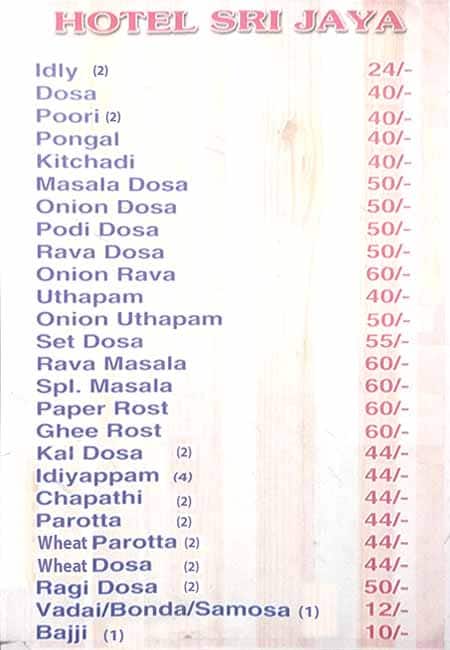 HOTEL SRI JAYA
Idly (2) 24/-
Dosa 40/-
Poori (2) 40/-
Pongal 40/-
Kitchadi 40/-
Masala Dosa 50/-
Onion Dosa 50/-
Podi Dosa 50/-
Rava Dosa 50/-
Onion Rava 60/-
Uthapam 40/-
Onion Uthapam 50/-
Set Dosa 55/-
Rava Masala 60/-
Spl. Masala 60/-
Paper Rost 60/-
Ghee Rost 60/-
Kal Dosa (2) 44/-
Idiyappam (4) 44/-
Chapathi (2) 44/-
Parotta (2) 44/-
Wheat Parotta (2) 44/-
Wheat Dosa (2) 44/-
Ragi Dosa (2) 50/-
Vadai/Bonda/Samosa (1) 12/-
Bajji (1) 10/-